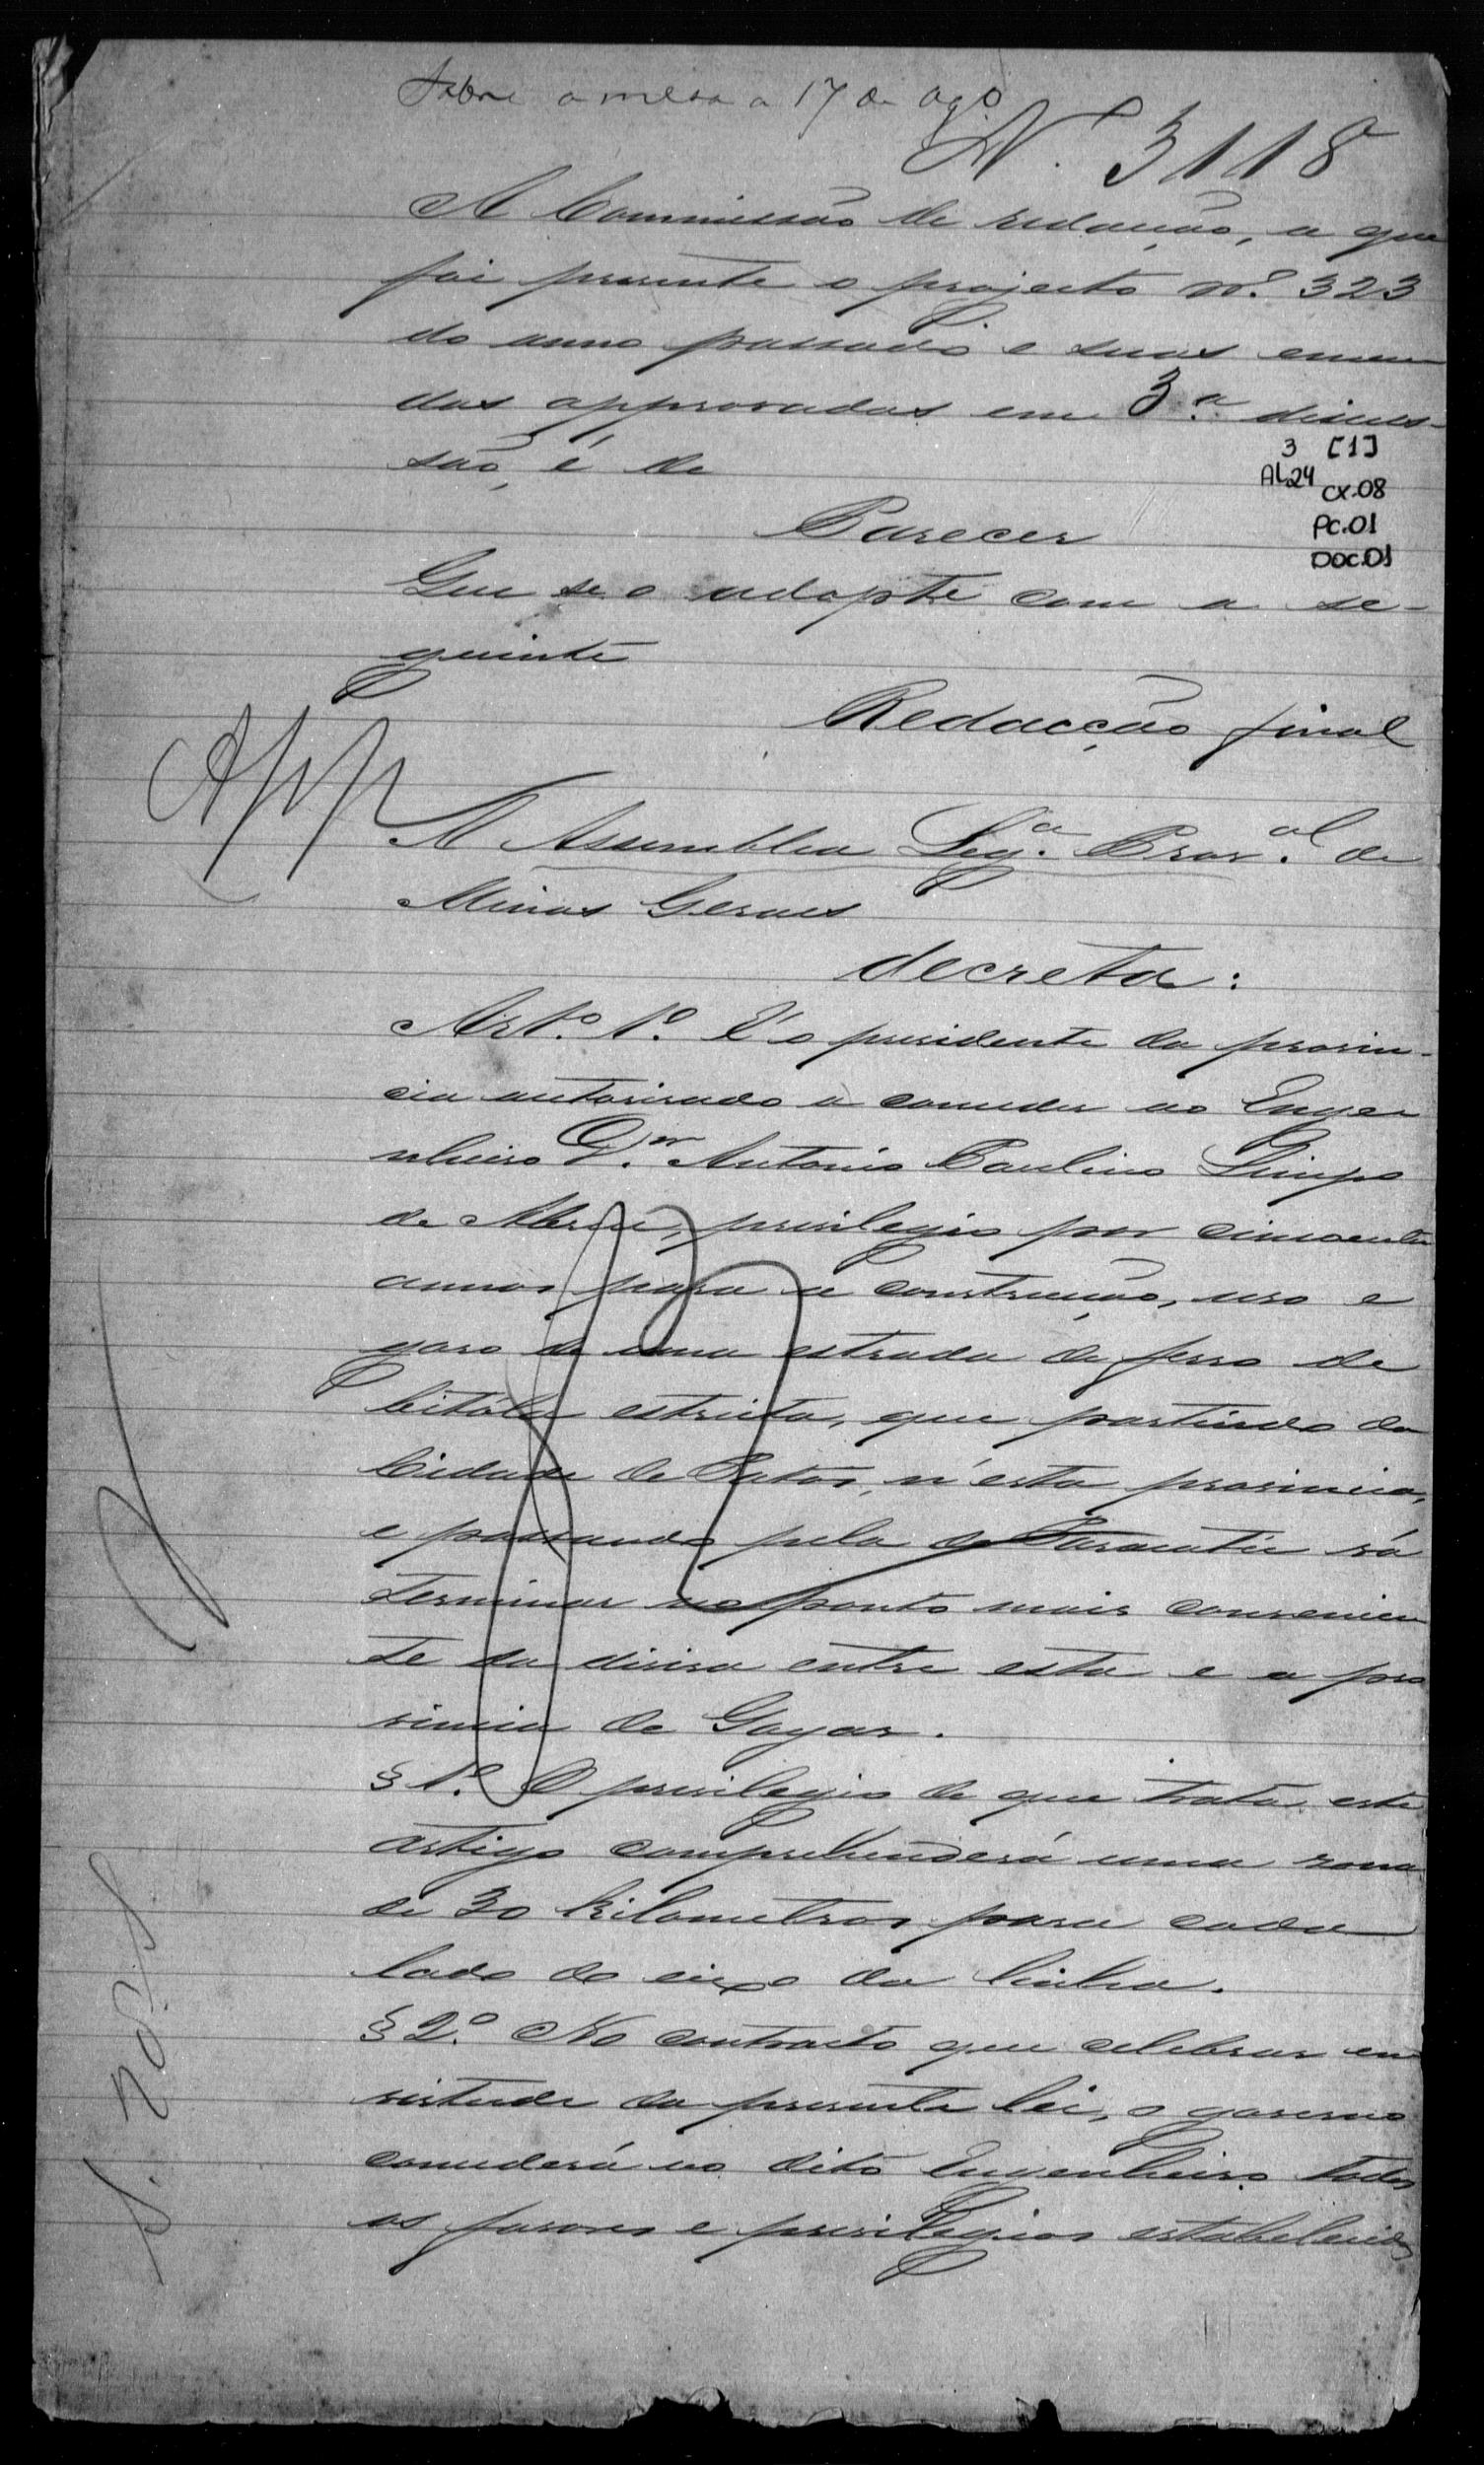 Sobre a mesa a 17 de ago
N. 3118
A Commissão de redacção, a que
foi presente o projecto nº. 323
do anno passado e suas emen
das approvadas em 3ª discus-
são, é de
3 [1]
AL24 CX.08
PC.01
DOC.01
Parecer
Que se o adopte com a se-
guinte
Redacção final
App
A Assemblea Leg.ª Prov.al de
Minas Geraes
decreta:
Art.º 1º. É o presidente da provin-
cia autorisado a conceder ao Enge
nheiro D.or Antonio Paulino Limpo
de Abreu, privilegio por cincoenta
annos para a construcção, uso e
goso de uma estrada de ferro de
bitóla estreita, que partindo da
Cidade de Patos, n'esta provincia,
e passando pela de Paracatú vá
terminar no ponto mais convenien
te da divisa entre esta e a pro
vincia de Goyas.
§ 1º. O privilegio de que trata este
artigo comprehenderá uma zona
de 30 kilometros para cada
lado do eixo da linha.
§ 2º. No contracto que celebrar em
virtude da presente lei, o governo
concederá ao dito Engenheiro todos
os favores e privilegios estabelecidos